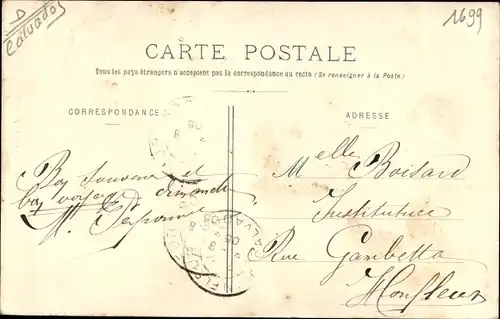 D
Calvados
1699
CARTE POSTALE
Tous les pays étrangers n'acceptent pas la correspondance au recto (Se renseigner à la Poste)
CORRESPONDANCE
ADRESSE
Bon souvenir et
bon voyage dimanche
M.
Melle Boisard
Institutrice
Rue Gambetta
Honfleur
CALVADOS